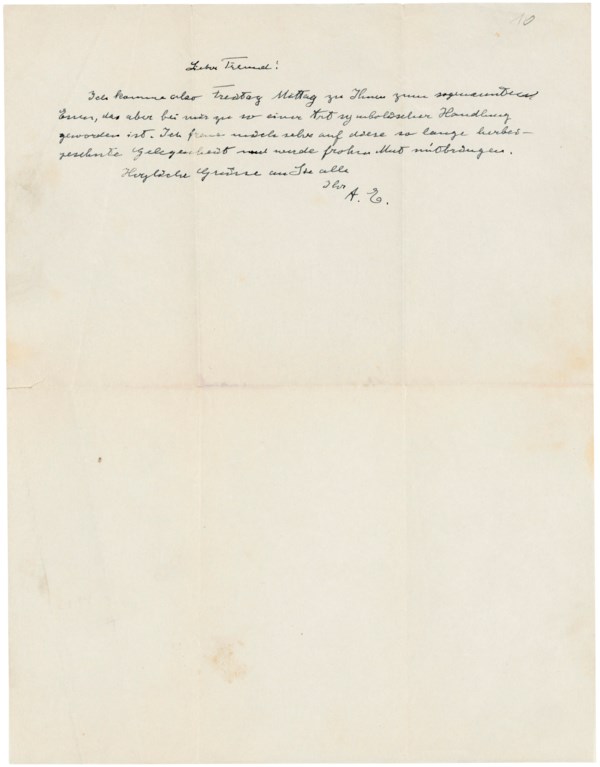 10
Lieber Freund!
Ich komme also Freitag Mittag zu Ihnen zum sogenannten
Essen, das aber bei mir zu so einer Art symbolischer Handlung
geworden ist. Ich freue mich sehr auf diese so lange herbei-
gesehnte Gelegenheit und werde frohen Mut mitbringen.
Herzliche Grüsse an Sie alle
Ihr
A. E.